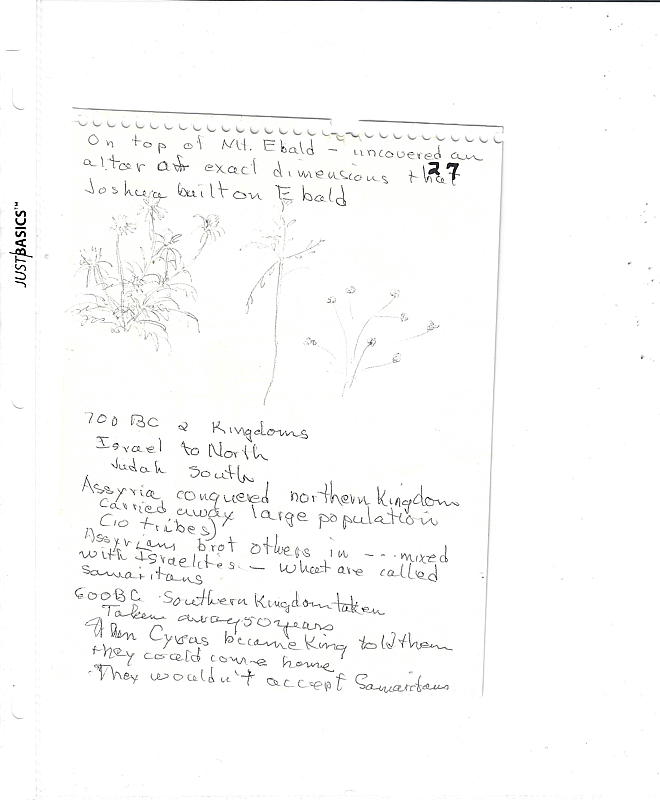 On top of Mt. Ebald – uncovered an
altar of exact dimensions that
27
Joshua built on Ebald
JUSTBASICS™
700 BC 2 Kingdoms
Israel to North
Judah South
Assyria conquered northern Kingdom
Carried away large population
(10 tribes)
Assyrians brot others in --- mixed
with Israelites – what are called
Samaritans
600BC Southern Kingdom taken
Taken away 50 years
When Cyrus became King told them
they could come home
They wouldn't accept Samaritans